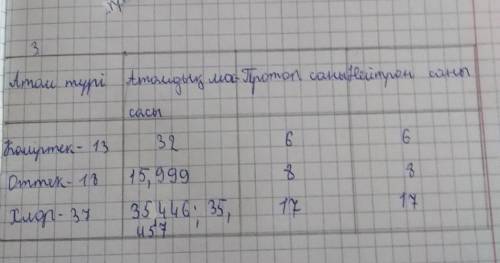 3
Атом түрі Атомдық мас- Протон саны Нейтрон саны
сасы
Көміртек-13 32 6 6
Оттек-18 15,999 8 8
Хлор-37 35 446; 35, 17 17
457